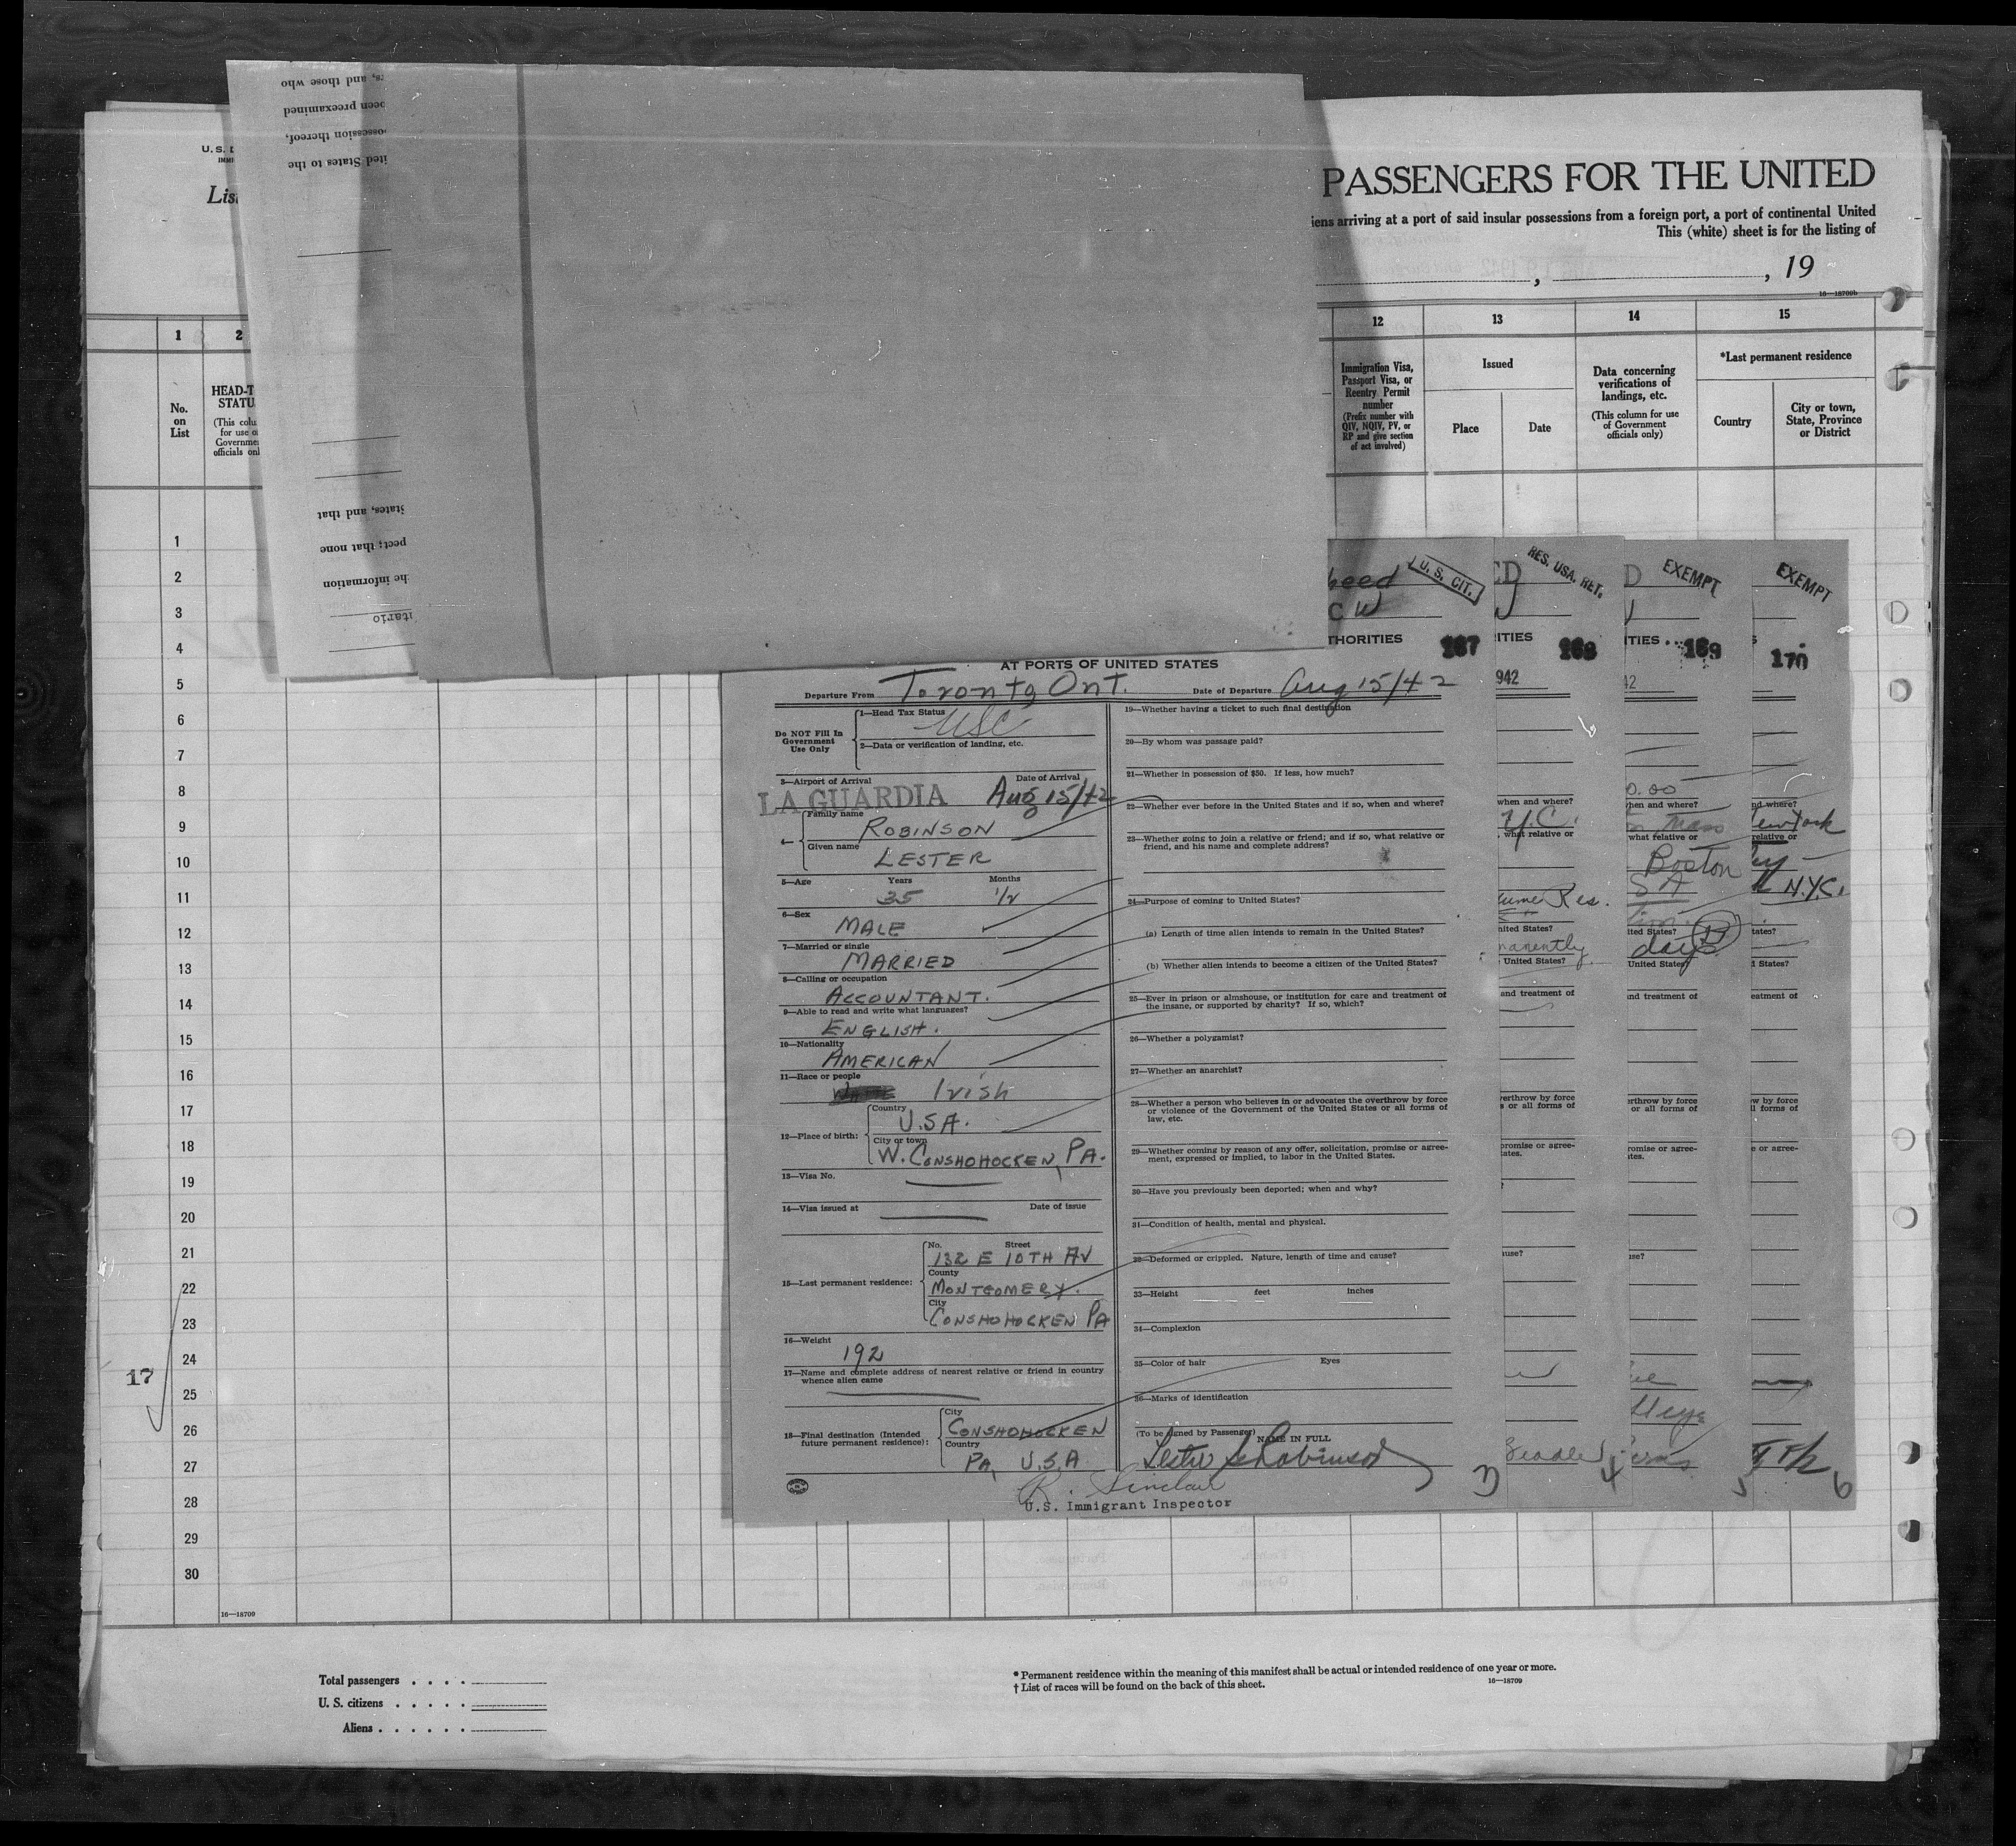 PASSENGERS FOR THE UNITED
iens arriving at a port of said insular possessions from a foreign port, a port of continental United
This (white) sheet is for the listing of
, 19
16—18709b
s, and those who
been preexamined
ossession thereof,
ited States to the
States, and that
pect; that none
he information
itario
U. S. D
IMMI
List
1
2
12
13
14
15
No.
on
List
HEAD-T
STATU
(This colu
for use o
Governme
officials onl
Immigration Visa,
Passport Visa, or
Reentry Permit
number
(Prefix number with
QIV, NQIV, PV, or
RP and give section
of act involved)
Issued
Place
Date
Data concerning
verifications of
landings, etc.
(This column for use
of Government
officials only)
*Last permanent residence
Country
City or town,
State, Province
or District
1
2
3
4
5
6
7
8
9
10
11
12
13
14
15
16
17
18
19
20
21
22
23
24
17
25
26
27
28
29
30
16—18709
U. S. CIT.
THORITIES 167
AT PORTS OF UNITED STATES
Departure From Toronto Ont. Date of Departure Aug 15/42
Do NOT Fill In
Government
Use Only
1—Head Tax Status
USC
2—Data or verification of landing, etc.
3—Airport of Arrival Date of Arrival
LA GUARDIA Aug 15/42
4— Family name
ROBINSON
Given name
LESTER
5—Age Years Months
35 1/2
6—Sex
MALE
7—Married or single
MARRIED
8—Calling or occupation
ACCOUNTANT.
9—Able to read and write what languages?
ENGLISH.
10—Nationality
AMERICAN
11—Race or people
Irish
12—Place of birth:
Country
U.S.A.
City or town
W. CONSHOHOCKEN, PA.
13—Visa No.
14—Visa issued at Date of issue
15—Last permanent residence:
No. Street
132 E 10TH AV
County
MONTGOMERY.
City
CONSHOHOCKEN PA
16—Weight
192
17—Name and complete address of nearest relative or friend in country
whence alien came
18—Final destination (Intended
future permanent residence):
City
CONSHOHOCKEN
Country
PA, U.S.A
19—Whether having a ticket to such final destination
20—By whom was passage paid?
21—Whether in possession of $50. If less, how much?
22—Whether ever before in the United States and if so, when and where?
23—Whether going to join a relative or friend; and if so, what relative or
friend, and his name and complete address?
24—Purpose of coming to United States?
(a) Length of time alien intends to remain in the United States?
(b) Whether alien intends to become a citizen of the United States?
25—Ever in prison or almshouse, or institution for care and treatment of
the insane, or supported by charity? If so, which?
26—Whether a polygamist?
27—Whether an anarchist?
28—Whether a person who believes in or advocates the overthrow by force
or violence of the Government of the United States or all forms of
law, etc.
29—Whether coming by reason of any offer, solicitation, promise or agree-
ment, expressed or implied, to labor in the United States.
30—Have you previously been deported; when and why?
31—Condition of health, mental and physical.
32—Deformed or crippled. Nature, length of time and cause?
33—Height feet inches
34—Complexion
35—Color of hair Eyes
36—Marks of identification
(To be signed by Passenger) NAME IN FULL
Lester Robinson
R. Sinclair
U.S. Immigrant Inspector
3
RES. USA. RET.
ITIES 168
942
when and where?
Y.C.
, what relative or
Res.
nited States?
manently
United States?
and treatment of
verthrow by force
s or all forms of
promise or agree-
ates.
?
use?
4
EXEMPT
ITIES 169
42
0.00
hen and where?
Mass
what relative or
Boston
S A
ited States?
days
United States?
nd treatment of
rthrow by force
or all forms of
romise or agree-
tes.
se?
5
EXEMPT
170
nd where?
ew York
relative or
N.Y.C.
tates?
l States?
eatment of
w by force
ll forms of
e or agree-
6
Total passengers . . . .
U. S. citizens . . . . .
Aliens . . . . . .
* Permanent residence within the meaning of this manifest shall be actual or intended residence of one year or more.
† List of races will be found on the back of this sheet.
16—18709